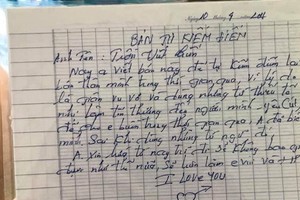 Ngày 10 tháng 9 năm 2014
BẢN TỰ KIỂM ĐIỂM
Anh Tên : Trần Việt
Nay a viết bản này để tự kiểm điểm lại
bản thân mình trong thời gian qua, vì lý do
là giận vu vơ và dùng những từ thiếu tế
nhị làm tổn thương đến người mình yêu
để cho e buồn thời gian qua. A đã biết
mình sai khi dùng những từ ngữ đó
A xin hứa từ nay trở đi sẽ không bao giờ
như thế nữa, sẽ luôn làm e vui và
I LOVE YOU